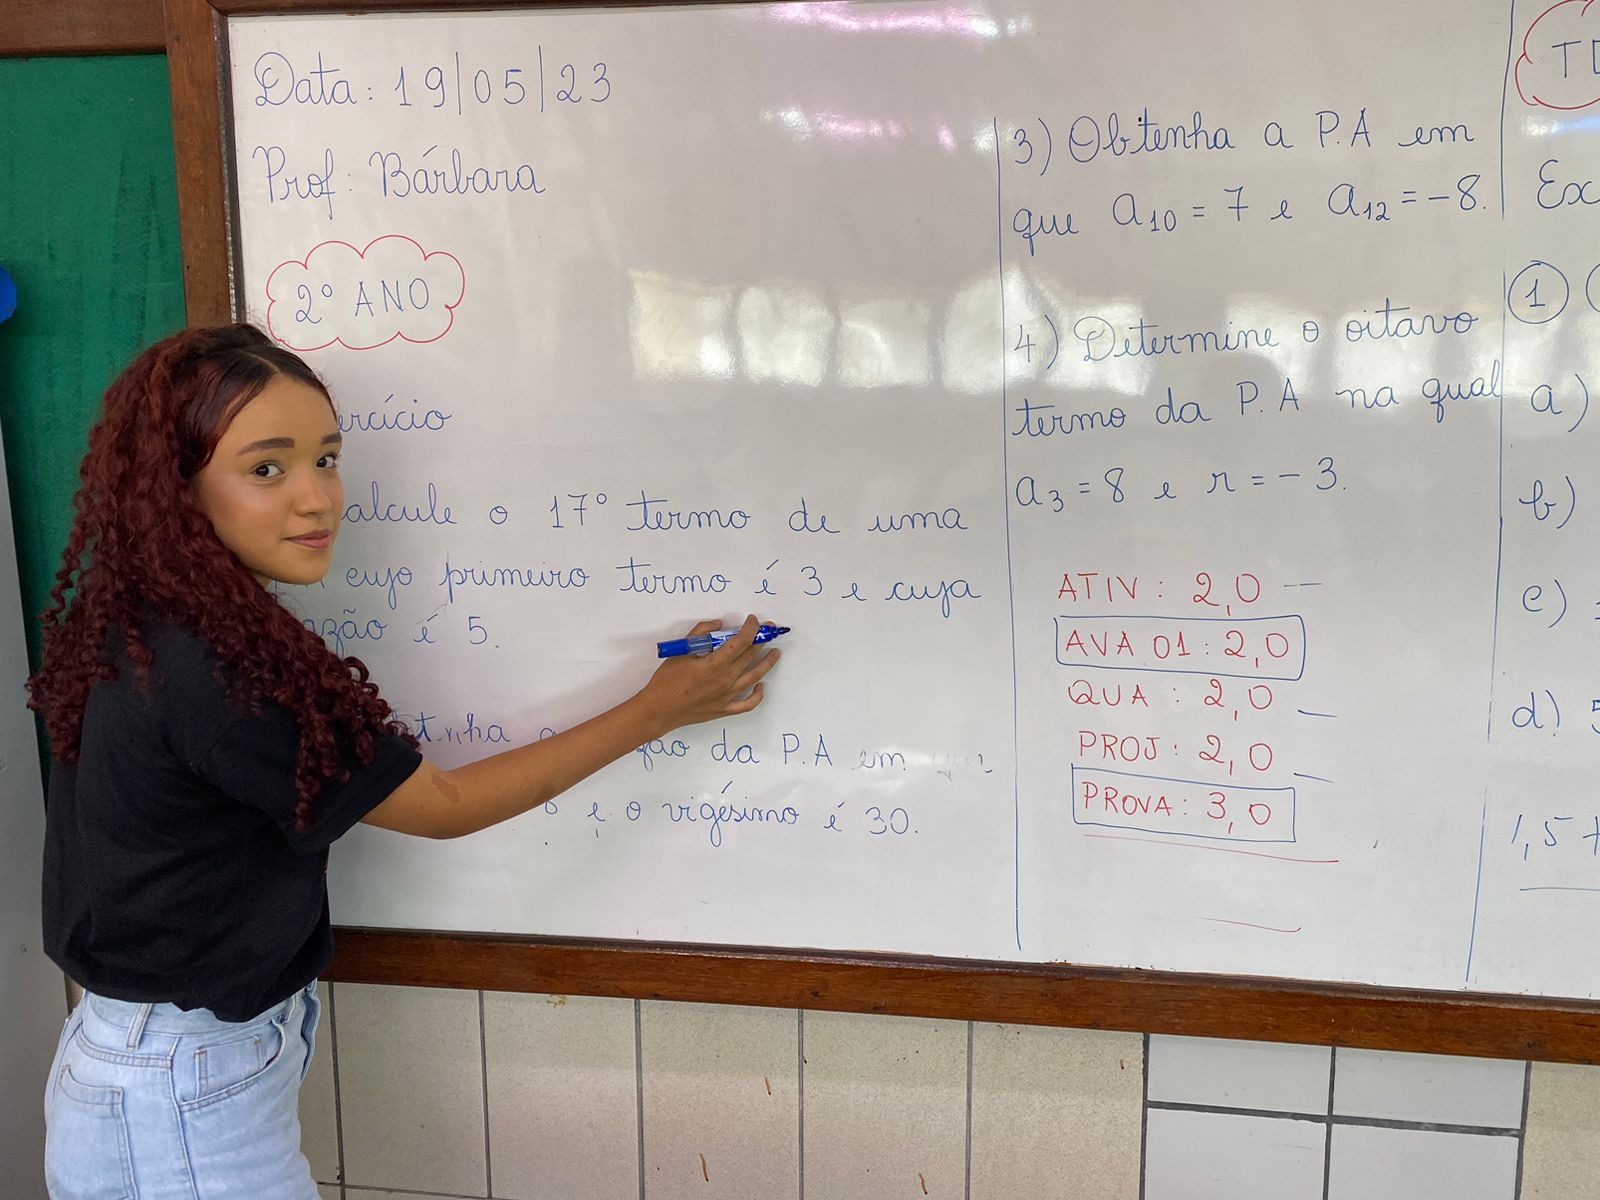 Data: 19/05/23
Prof: Bárbara
2º ANO
ercício
alcule o 17º termo de uma
cujo primeiro termo é 3 e cuja
azão é 5.
da P.A em
e o vigésimo é 30.
3) Obtenha a P.A em
que a₁₀ = 7 e a₁₂ = -8.
4) Determine o oitavo
termo da P.A na qual
a₃ = 8 e r = - 3.
ATIV: 2,0
AVA 01: 2,0
QUA: 2,0
PROJ: 2,0
PROVA: 3,0
Ex
1
a)
b)
c)
d) 5
1,5 +